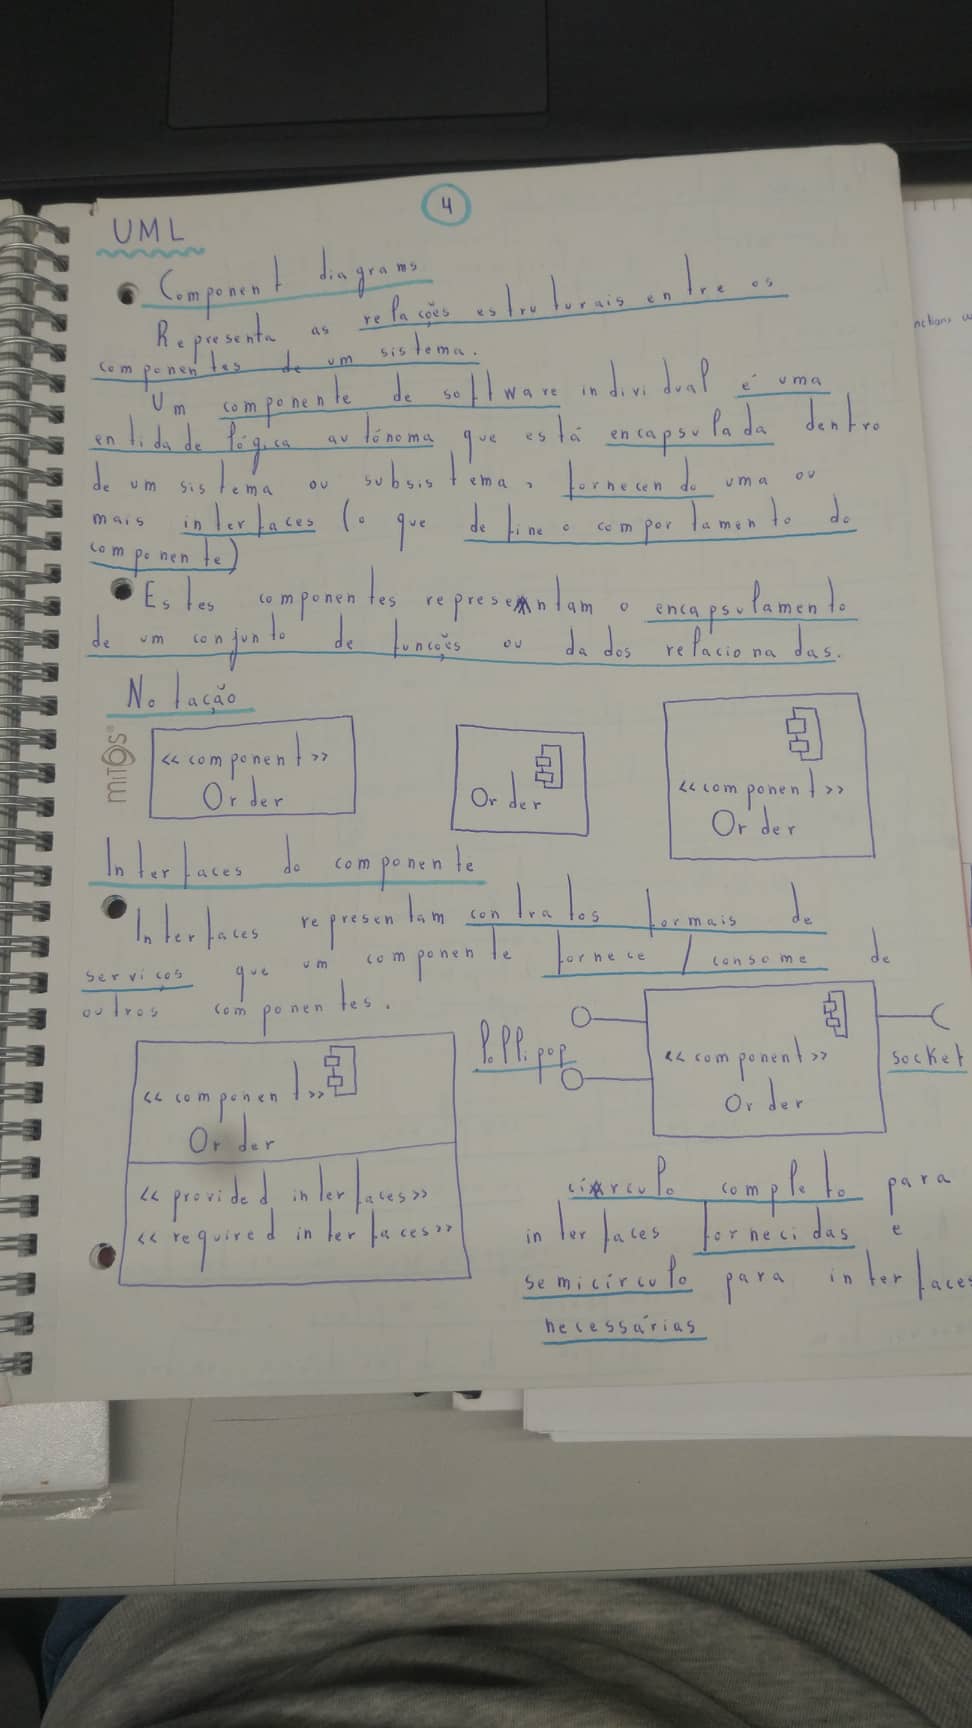 4
UML
Component diagrams
Representa as relações estruturais entre os
componentes de um sistema.
Um componente de software individual é uma
entidade lógica autónoma que está encapsulada dentro
de um sistema ou subsistema, fornecendo uma ou
mais interfaces (o que define o comportamento do
componente)
Estes componentes representam o encapsulamento
de um conjunto de funções ou dados relacionadas.
Notação
MITOS®
<< component >>
Order
Order
<< component >>
Order
Interfaces do componente
Interfaces representam contratos formais de
serviços que um componente fornece / consome de
outros componentes.
<< component >>
Order
<< provided interfaces >>
<< required interfaces >>
lollipop
<< component >>
Order
socket
círculo completo para
interfaces fornecidas e
semicírculo para interfaces
necessárias
nctions